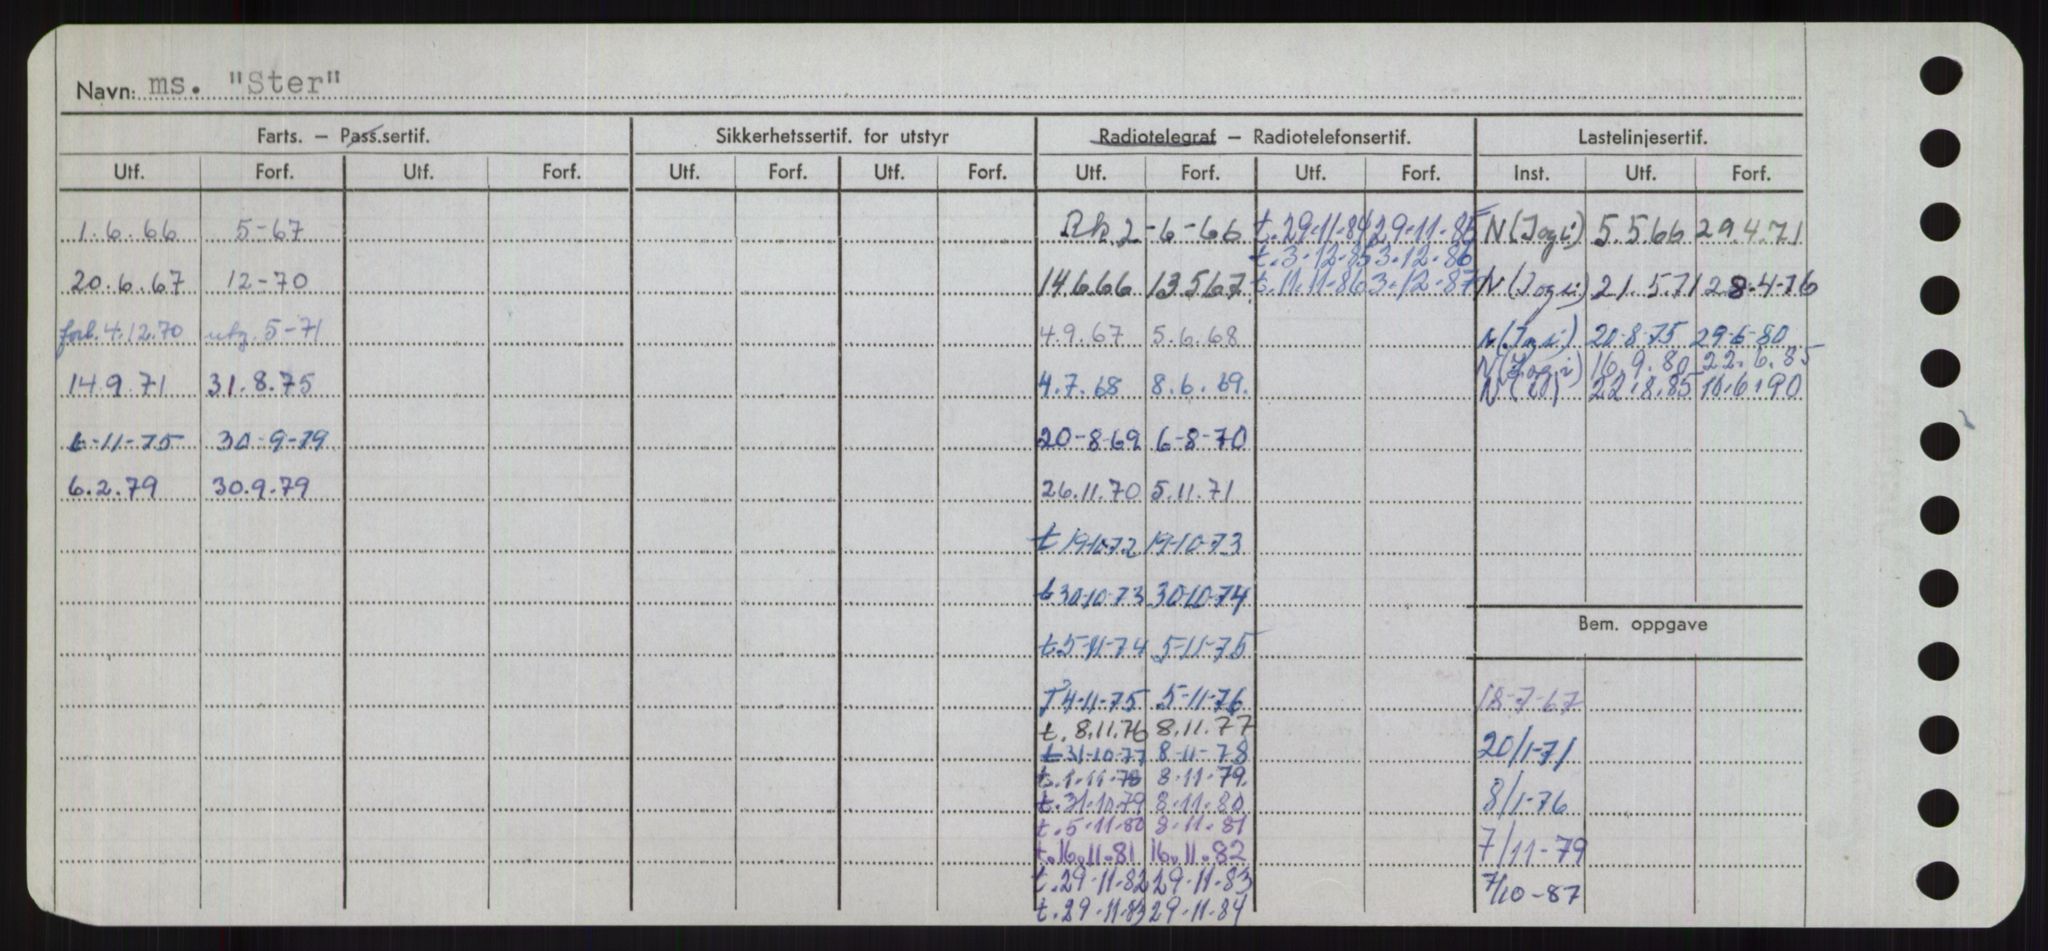 Navn: ms. "Ster"
Farts. — Pass.sertif. Sikkerhetssertif. for utstyr Radiotelegraf — Radiotelefonsertif. Lastelinjesertif.
Utf. Forf. Utf. Forf. Utf. Forf. Utf. Forf. Utf. Forf. Utf. Forf. Inst. Utf. Forf.
1.6.66 5-67 Rk. 2-6-66 t. 29.11.84 29.11.85 N (Jogi) 5.5.66 29.4.71
t. 3.12.85 3.12.86
20.6.67 12-70 14.6.66 13.5.67 t. 11.11-86 3.12-87 N (Jogi) 21.5.71 28-4-76
forl. 4.12.70 utg. 5-71 4.9.67 5.6.68 N (Jogi) 20-8-75 29-6-80
N (Jogi) 16.9.80 22.6.85
14.9.71 31.8.75 4.7.68 8.6.69. N 22.8.85 10.6.90
6-11-75 30-9-79 20-8-69 6-8-70
6.2.79 30.9.79 26.11.70 5.11.71
t 19-10-72 19-10-73
t 30-10-73 30-10-74
Bem. oppgave
t. 5-11-74 5-11-75
T 4-11-75 5-11-76 18-7-67
t. 8.11.76 8.11.77
t 31-10-77 8-11-78 20/1-71
t. 1-11-78 8-11-79.
t. 31-10-79 8-11-80 8/1-76
t. 5-11-80 8-11-81
t. 16.11.81 16.11.82 7/11-79
t. 29-11-82 29-11-83 7/10-87
t. 29-11-83 29-11-84